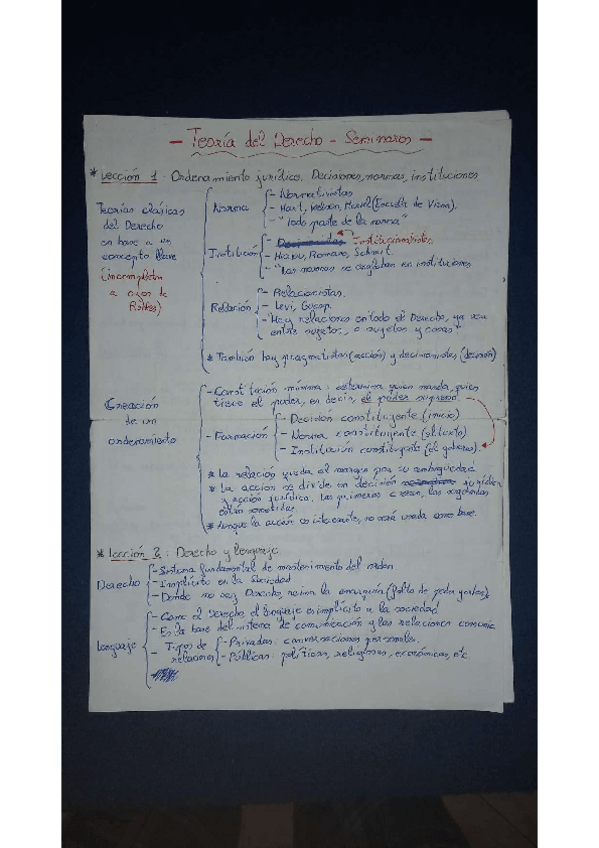 - Teoría del Derecho - Seminarios -
* Lección 1: Ordenamiento jurídico. Decisiones, normas, instituciones
Teorías clásicas
del Derecho
en base a un
concepto llave
(incompletas
a ojos de
Robles)
Norma
- Normativistas
- Hart, Kelsen, (Escuela de Viena).
- "Todo parte de la norma"
Institución
- Institucionalistas
- Romano, Schmit.
- "Las normas no en instituciones
Relación
- Relacionistas.
- Levi, 
- "Hay relaciones en todo el Derecho, ya sea
entre sujetos, o sujetos y cosas"
* También hay pragmatistas (acción) y decisionistas (decisión)
Creación
de un
ordenamiento
- Constitución mínima: determina quien manda, quien
tiene el poder, es decir, el poder supremo
- Formación
- Decisión constituyente (inicio)
- Norma constituyente (el texto)
- Institución constituyente (el gobierno).
* La relación queda al margen por su ambigüedad
* La acción se divide en decisión jurídica
y acción jurídica. Las primeras crean, las segundas
están sometidas.
* Aunque la acción es interesante, no será usada como base.
* Lección 2: Derecho y lenguaje
Derecho
- Sistema fundamental de mantenimiento del orden
- Implícito en la sociedad
- Donde no hay Derecho, reina la anarquía (falta de poder)
Lenguaje
- Como el Derecho, el lenguaje es implícito a la sociedad
- Es la base del sistema de comunicación y las relaciones
- Tipos de
relaciones
- Privadas: conversaciones personales.
- Públicas: políticas, religiosas, económicas, etc